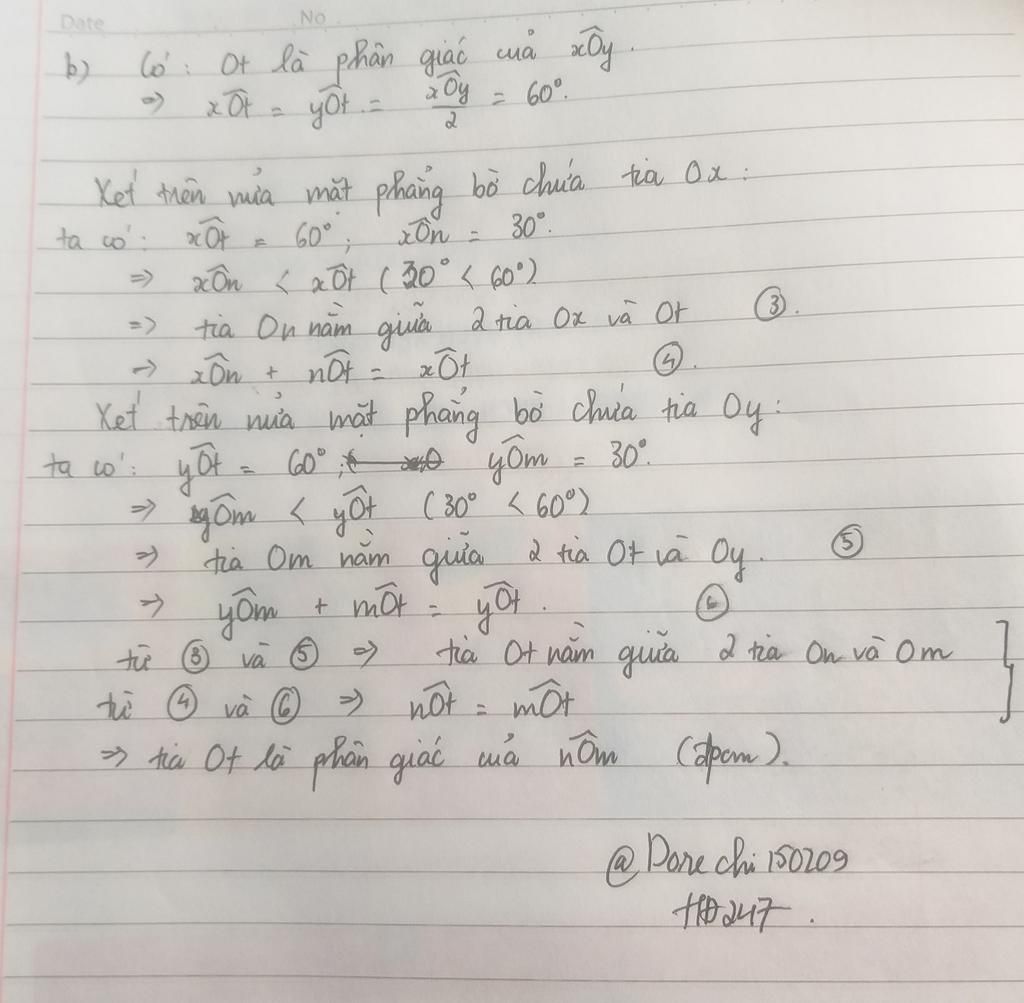 Date No
b) Có: Ot là phân giác của xÔy.
=> xÔt = yÔt = xÔy/2 = 60°.
Xét trên nửa mặt phẳng bờ chứa tia Ox:
ta có: xÔt = 60°; xÔn = 30°.
=> xÔn < xÔt (30° < 60°)
=> tia On nằm giữa 2 tia Ox và Ot ③.
=> xÔn + nÔt = xÔt ④.
Xét trên nửa mặt phẳng bờ chứa tia Oy:
ta có: yÔt = 60°; yÔm = 30°.
=> yÔm < yÔt (30° < 60°)
=> tia Om nằm giữa 2 tia Ot và Oy. ⑤
=> yÔm + mÔt = yÔt. ⑥
từ ③ và ⑤ => tia Ot nằm giữa 2 tia On và Om
từ ④ và ⑥ => nÔt = mÔt
=> tia Ot là phân giác của nÔm (đpcm).
@Dorechi150209